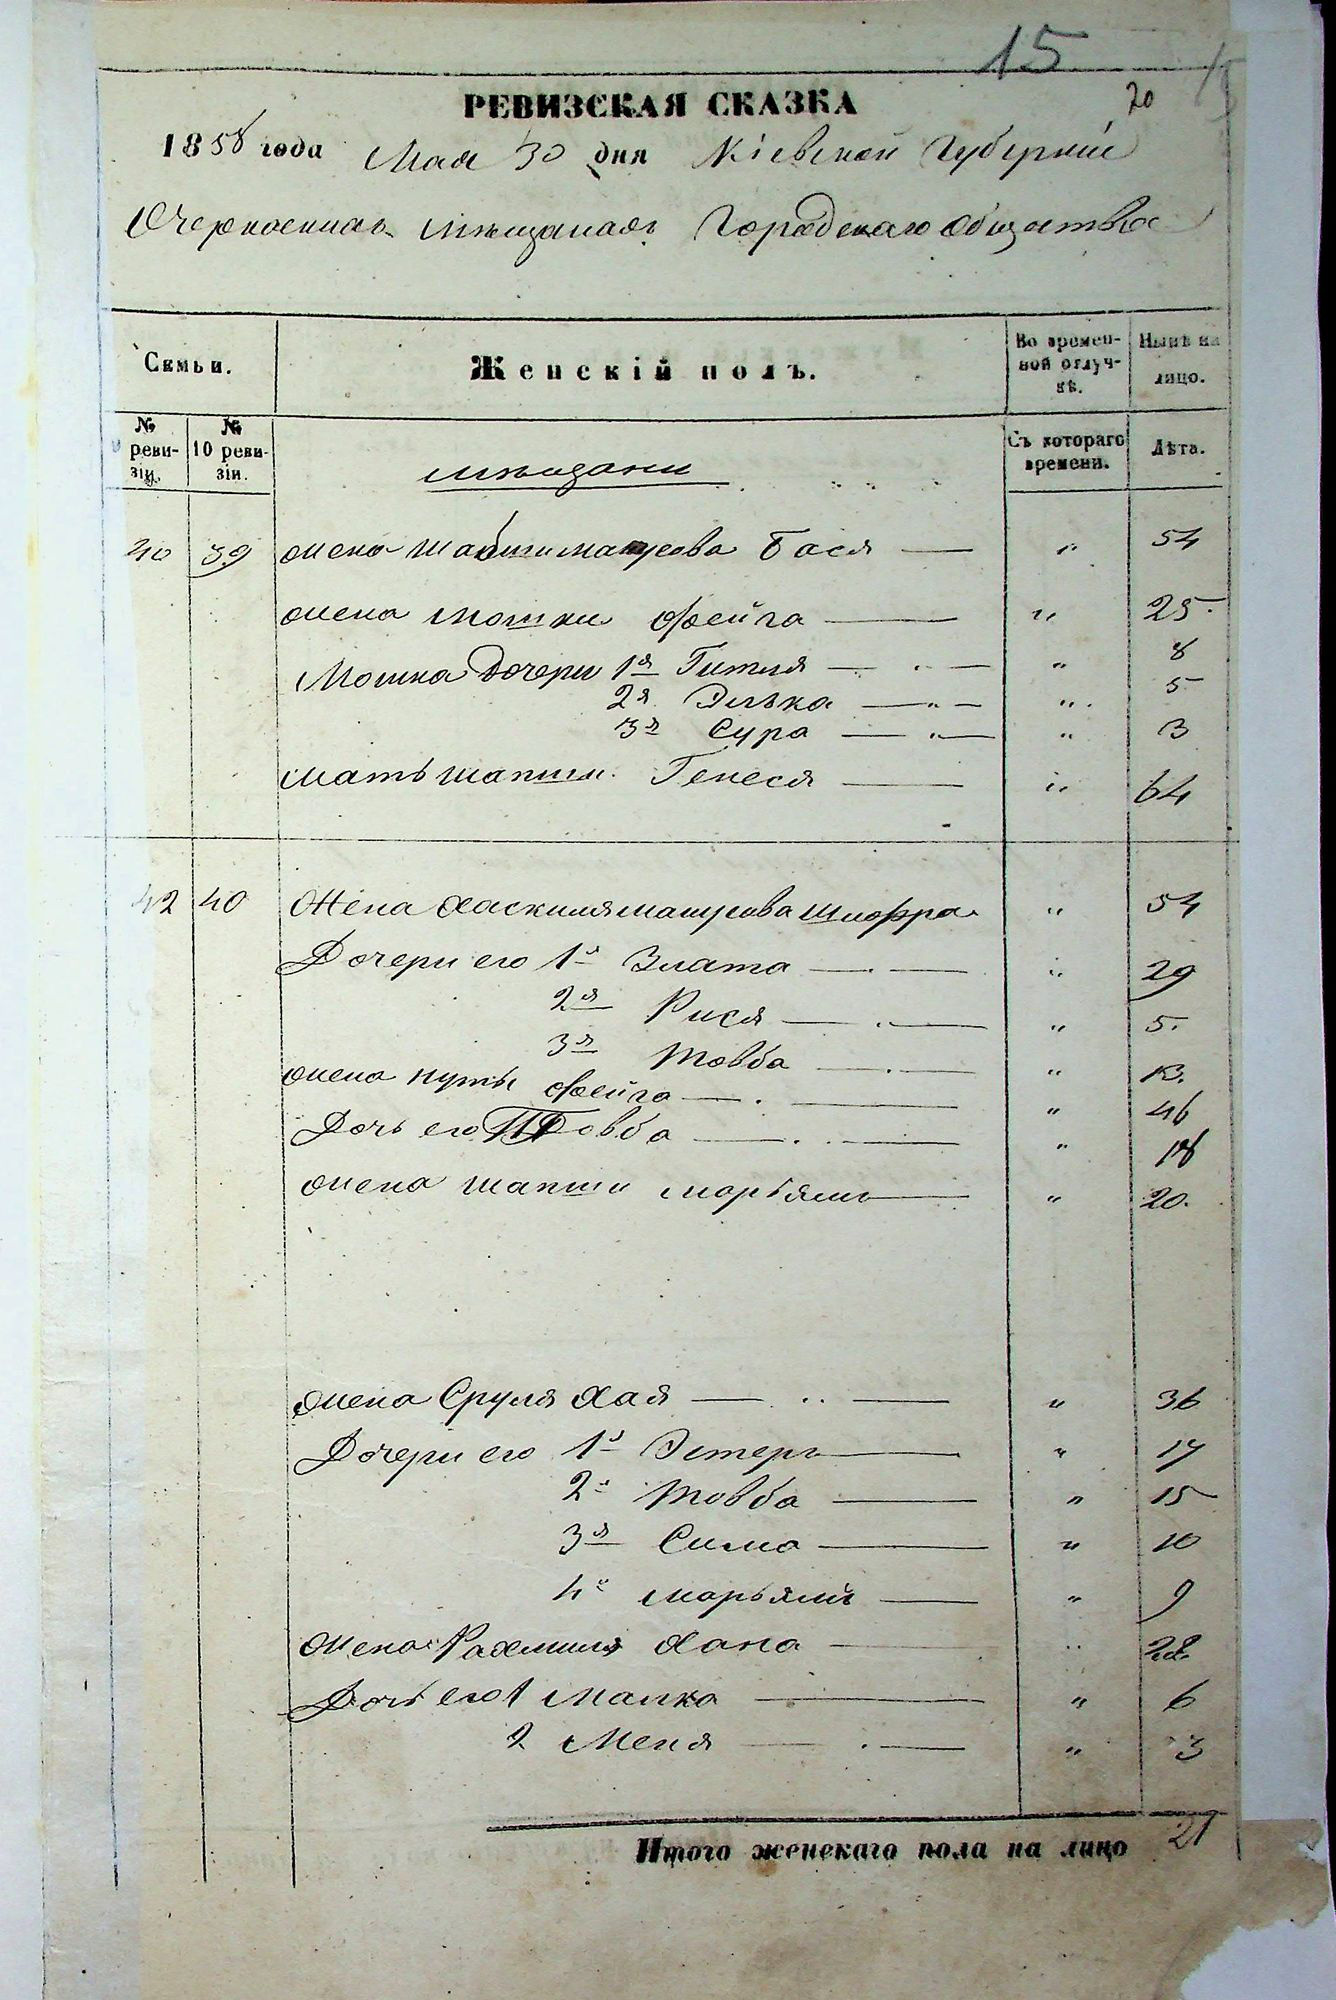 15
20
РЕВИЗСКАЯ СКАЗКА
1858 года Мая 30 дня Кіевской Губерніи
мѣщанахъ Городскаго Общества
Семьи.
Женскій полъ.
Во времен-
ной отлуч-
кѣ.
Нынѣ на
лицо.
№
реви-
зіи.
№
10 реви-
зіи.
мѣщани
Съ котораго
времени.
Лѣта.
40 39 жена Бася — " 54
жена Мошки Фейга — " 25
Мошка Дочери 1я Гитля — " 8
2я Элька — " 5
3я Сура — " 3
мать Шапши Генеся — " 64
42 40 Жена Хаскиля Шифра " 54
Дочери его 1я Злата — " 29
2я Рися — " 5.
3я Товба — " 13.
жена Нуты Фейга — " 46
Дочь его Товба — " 18
жена Шапши Марьямъ — " 20.
жена Сруля Хая — " 36
Дочери его 1я Эстеръ — " 17
2я Товба — " 15
3я Сима — " 10
4я Марьямъ — " 9
Жена Рахмиля Хана — " 28
Дочь его 1 Малка — " 6
2 Меня — " 3
Итого женскаго пола на лицо 21